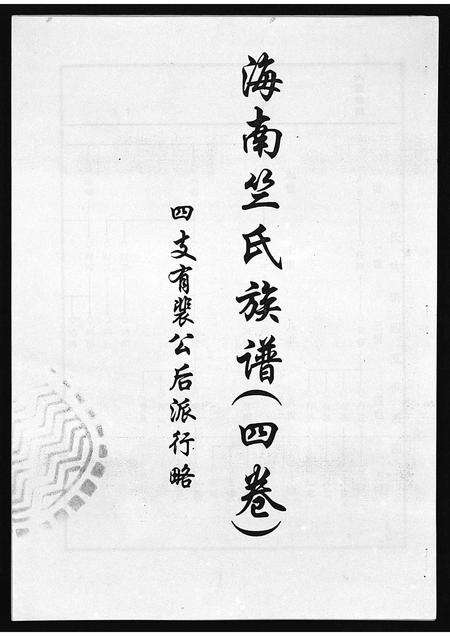 海南竺氏族谱(四卷)
四支有裴公后派行略